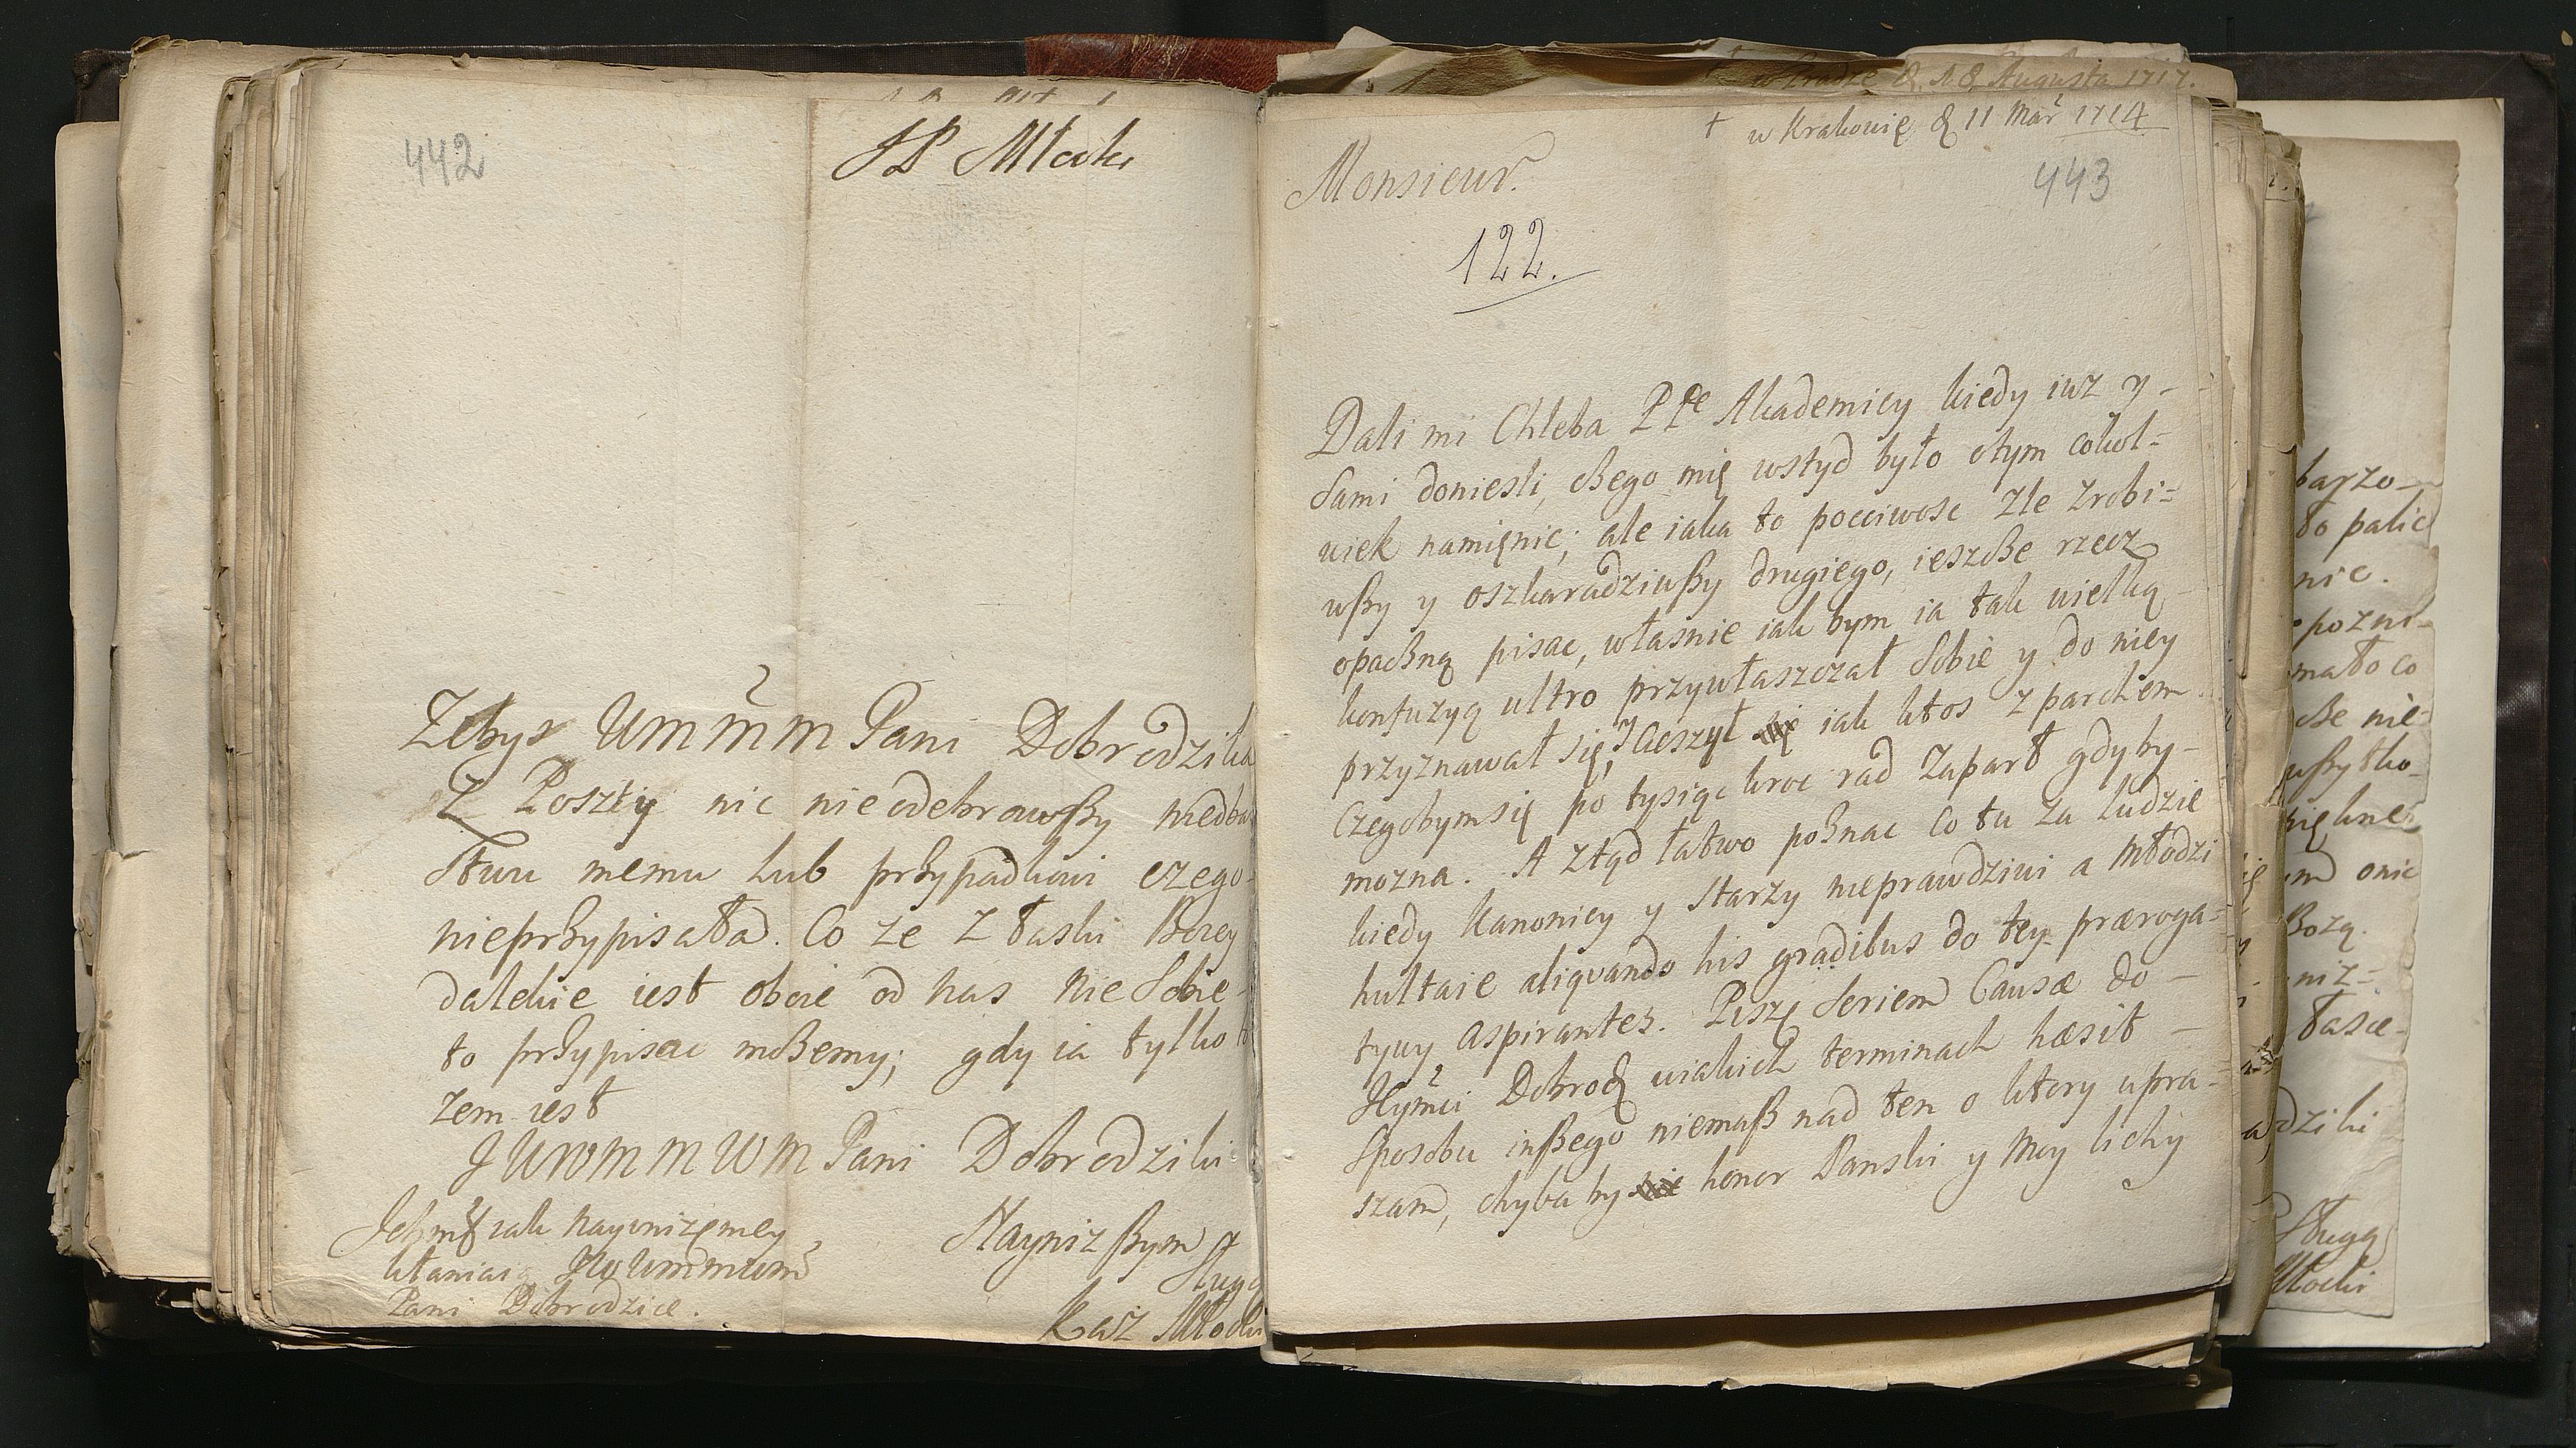 442
JP Młocki
Zebys UmmmPani Dobrodzika
Z Poszty nic nieodebrawszy niedba
stwu memu lub przypadkowi czego
nieprzypisała. Co ze Z łaski Bozey
dalekie iest oboie od nas nie Sobie
to przypisac mozemy; gdy ia tylko
zem iest
JWWMMWMPani Dobrodziki
Jchmć iak nayunizeney
kłaniaią
Pani Dobrodzice.
Nayniższym
Sługą
Kaz Młocki
w Krakowię d 11 Mar 1714
443
Monsieur.
122.
Dali mi Chleba PPe Akademicy kiedy iuz y-
Sami doniesli, czego mię wstyd było otym cokol=
wiek namięnic; ale iaka to pocciwosc zle zrobi=
wszy y oszkaradziwszy drugiego, ieszcze rzecz
opaczną pisac, własnie iak bym ia tak wielką
konfuzyą ultro przywłaszczał Sobie y do niey
przyznawał się, Icieszył iak ktos z parchem
Czegobymsię po tysiąc kroc rad zaparł gdyby-
mozna. A ztąd łatwo poznac Co tu za ludzie
kiedy Kanonicy y Starzy nieprawdziwi a Młodzi
hultaie aliqvando his gradibus do tey præroga=
tywy aspirantes. Piszę Seriem Causæ do -
JKymći Dobrodz wiakich terminach hæsit -
Sposobu inszego niemasz nad ten o ktory upra=
szam, chyba by honor Panski y Moy lichy
w Fradze d. 18 Augusta 1717.
barzo-
to palic
nic.
mało co
cze nie-
wszytko-
onic
Bozą.
niz-
łasce-
dziki
Sługą
Młocki